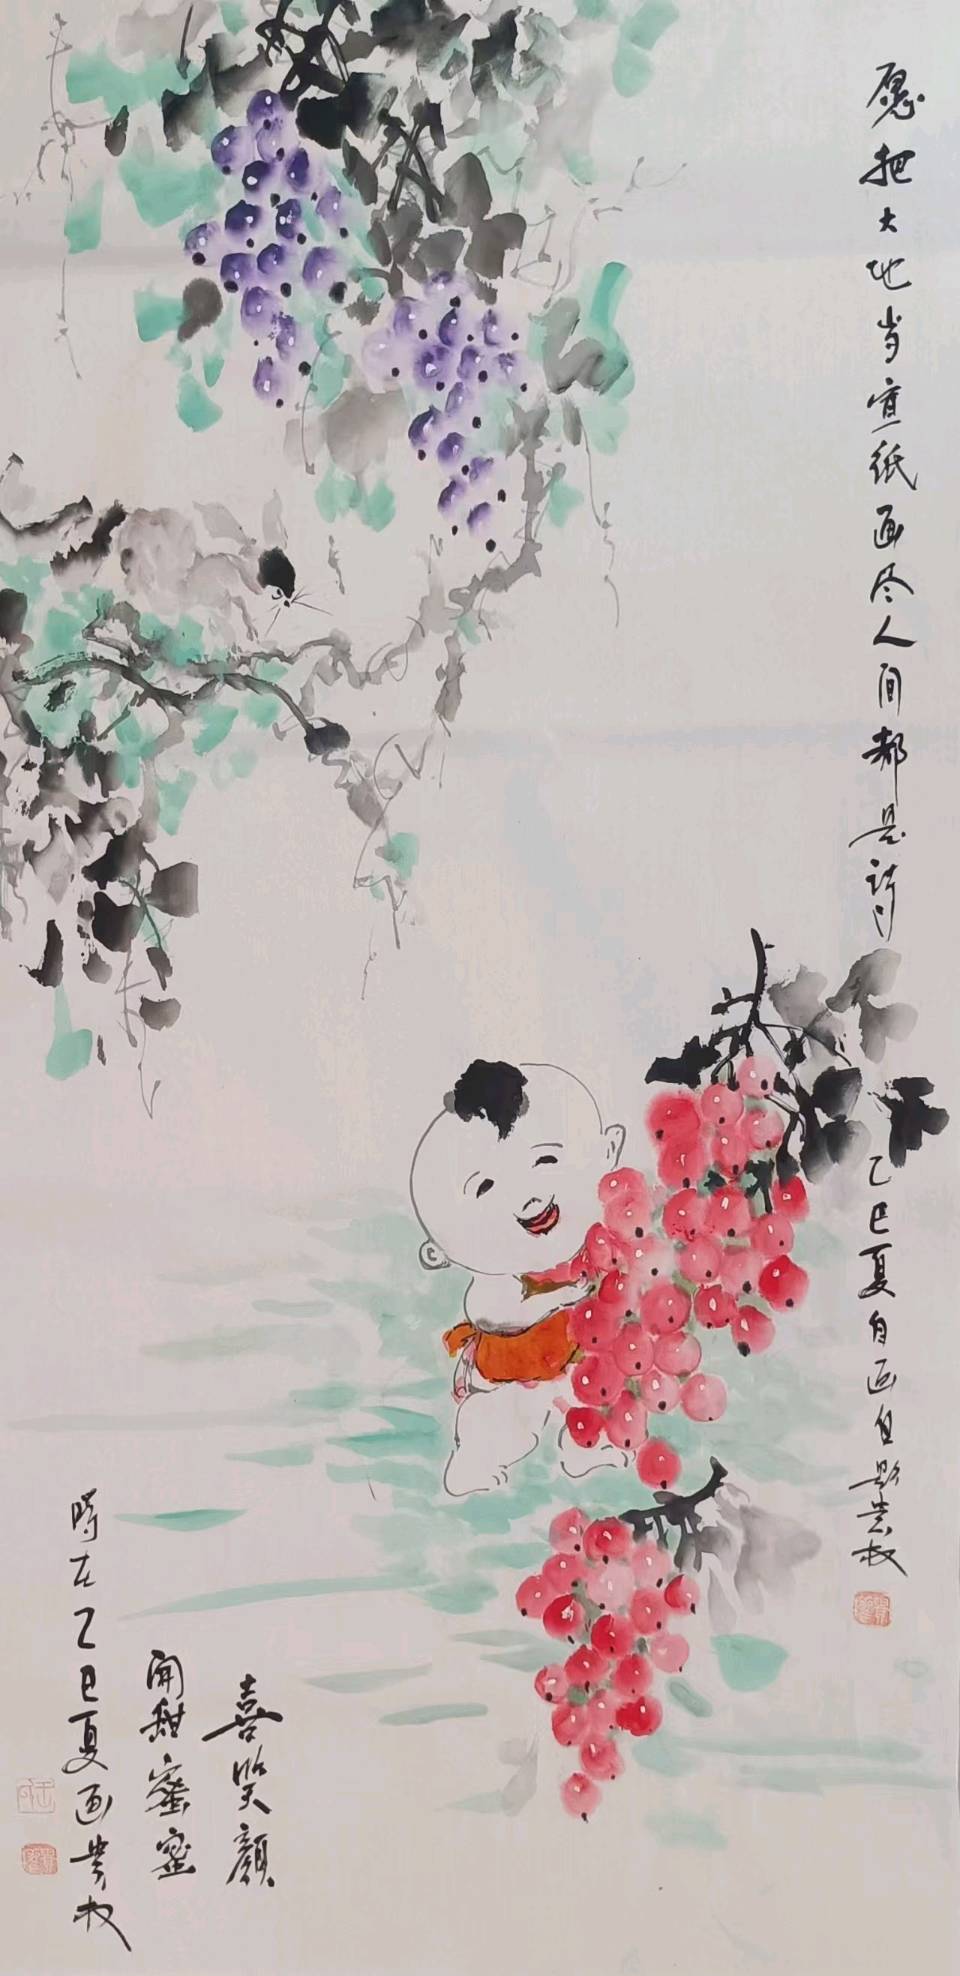 愿把大地当宣纸画尽人间都是诗
乙巳夏自画自影贵权
喜笑颜
开甜蜜蜜
时在乙巳夏画贵权